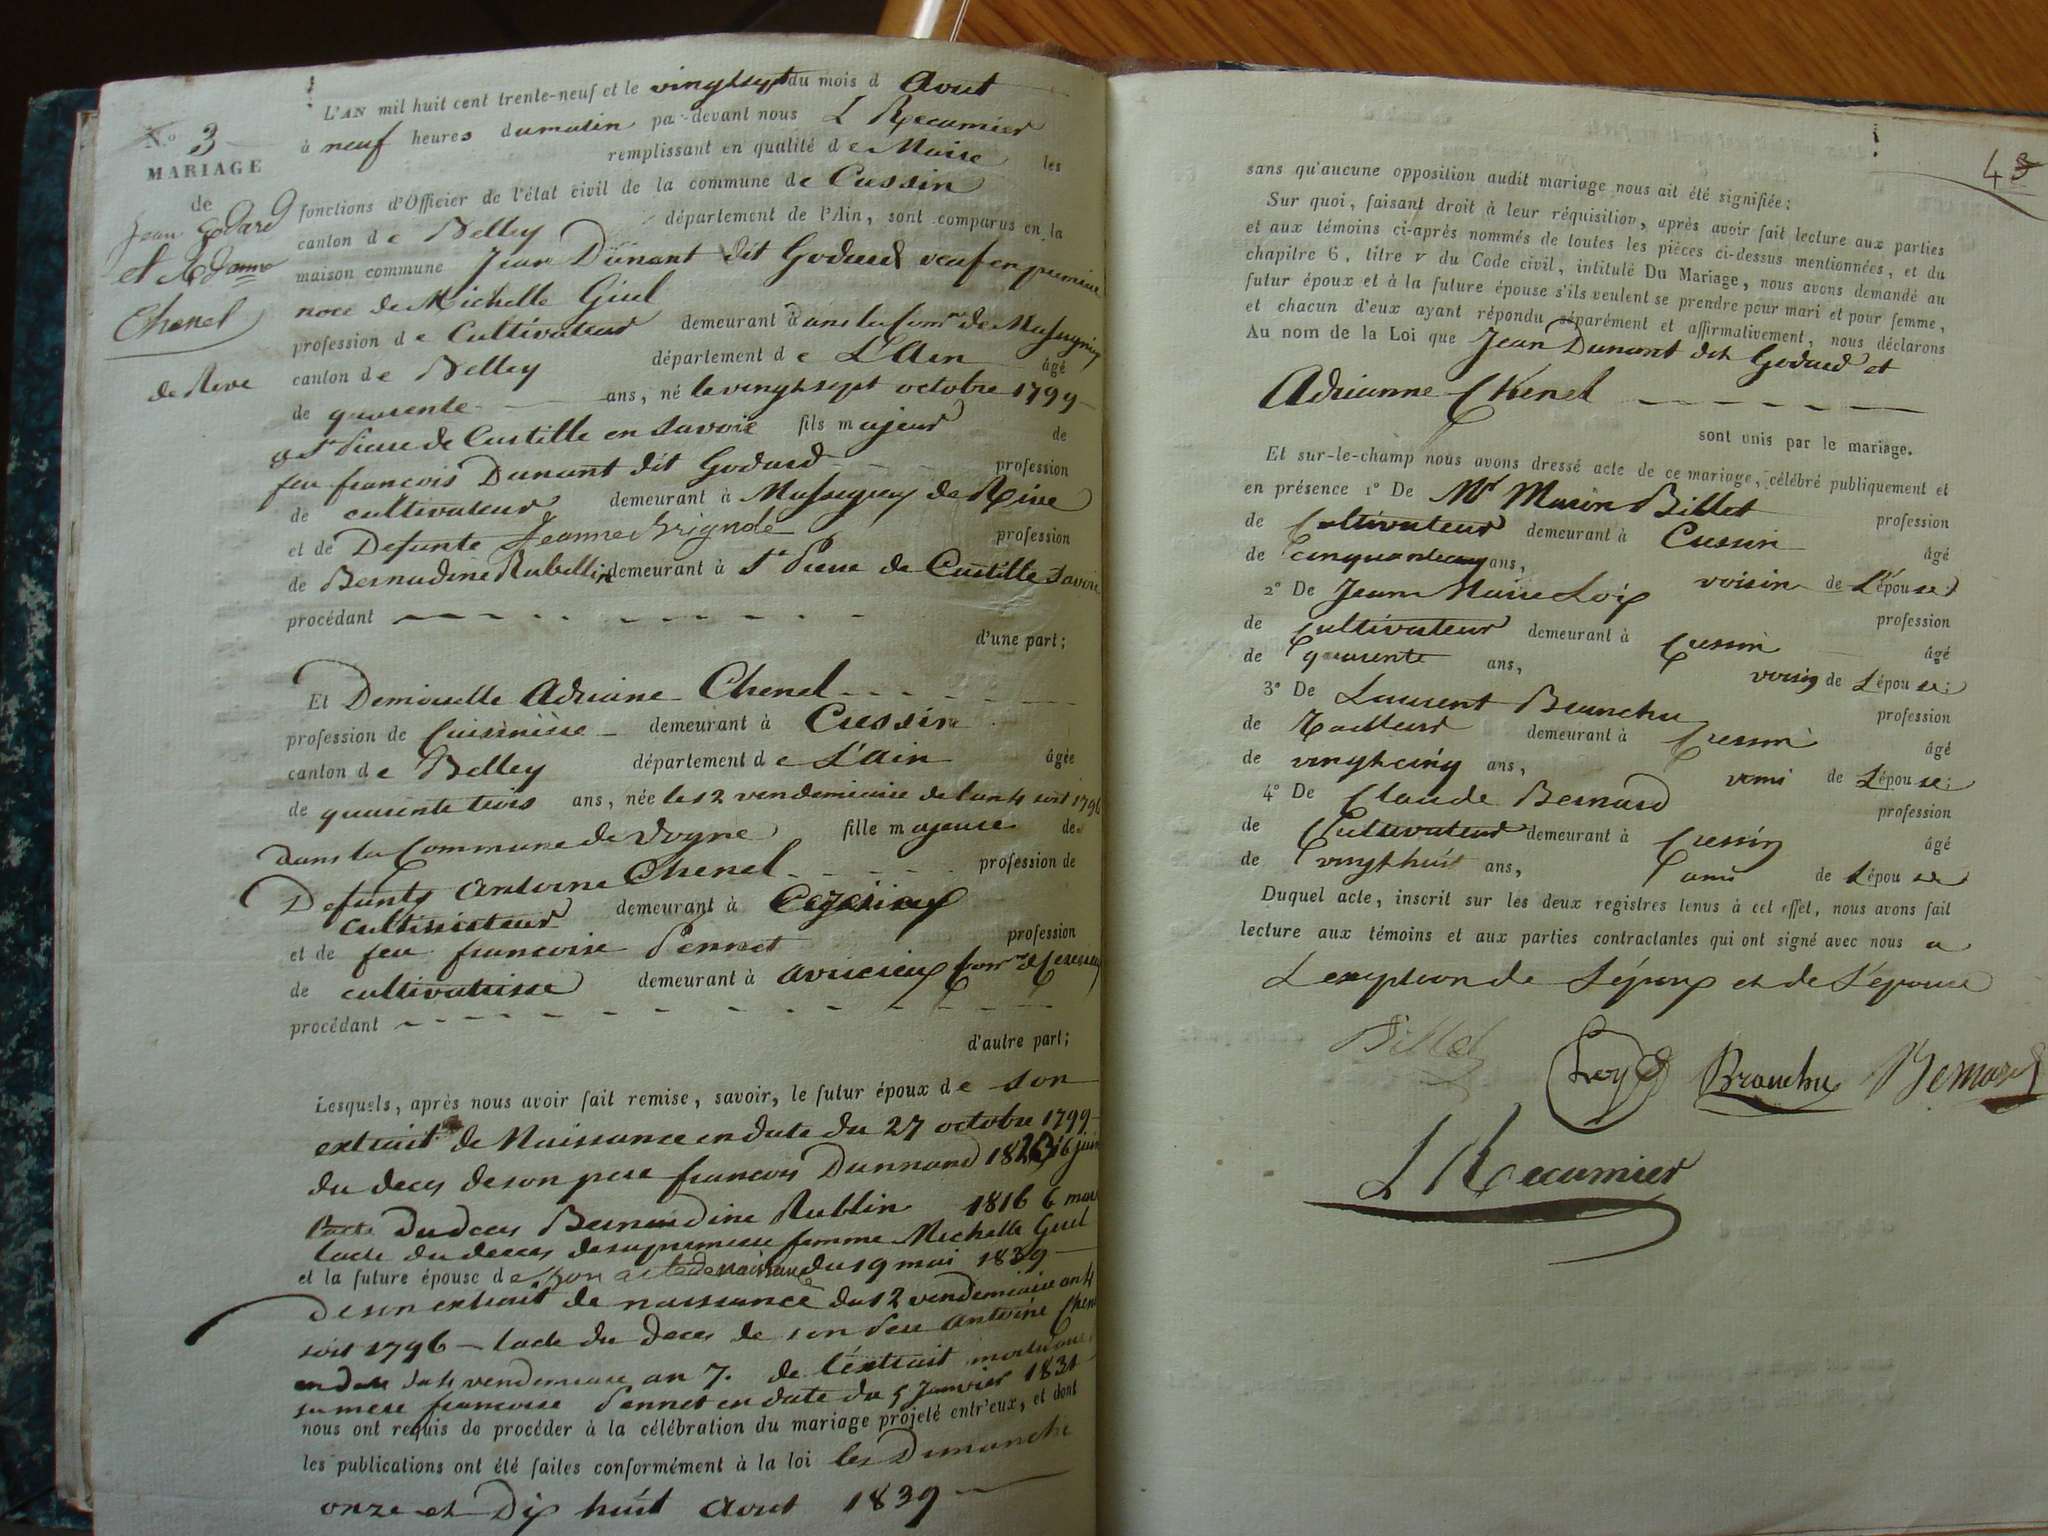 N.º 3
MARIAGE
de
Jean Godard
et Adrianne
Chenel
de Rive
L'AN mil huit cent trente-neuf et le vingt sept du mois d Aout
à neuf heures du matin par-devant nous L Recamier
remplissant en qualité de Maire les
fonctions d'Officier de l'état civil de la commune de Cressin
canton de Belley département de l'Ain, sont comparus en la
maison commune Jean Dunant dit Godard veuf en premiere
noce de Michelle Giel
profession de Cultivateur demeurant dans la Com.ne de Massigniey
canton de Belley département de L'Ain âgé
de quarente ans, né le vingt sept octobre 1799
a St Piere de Curtille en Savoie fils majeur de
feu francois Dunant dit Godard profession
de cultivateur demeurant à Massigney de Rive
et de Defunte Jeanne Brignole profession
de Bernardine Rubellin demeurant à St Piere de Curtille Savoie
procédant
d'une part;
Et Demoiselle Adriane Chenel
profession de Cuisinière demeurant à Cressin
canton de Belley département de L'Ain âgée
de quarente trois ans, née le 12 vendemiaire de lan 4 soit 1796
dans la Commune de Vogne fille majeure de
Defunts Antoine Chenel profession de
cultivateur demeurant à
et de feu francoise Pennet profession
de cultivatrisse demeurant à
procédant
d'autre part;
Lesquels, après nous avoir fait remise, savoir, le futur époux de son
extrait de Naissance en date du 27 octobre 1799
du deces de son pere francois Dunnand 16 juin
l'acte du deces Bernardine Rublin 1816 6 mai
lacte du deces de sa premiere femme Michelle Giel
et la future épouse de son acte de naissance du 19 mai 1839
De son extrait de naissance du 12 vendemiaire an 4
soit 1796 lacte du deces de son pere Antoine Chenel
en date du 4 vendemiaire an 7. de l'extrait mortuaire
sa mere francoise Pennet en date du 5 Janvier 1831
nous ont requis de procéder à la célébration du mariage projeté entr'eux, et dont
les publications ont été faites conformément à la loi les Dimanche
onze et Dix huit Aout 1839
43
sans qu'aucune opposition audit mariage nous ait été signifiée:
Sur quoi, faisant droit à leur réquisition, après avoir fait lecture aux parties
et aux témoins ci-après nommés de toutes les pièces ci-dessus mentionnées, et du
chapitre 6, titre v du Code civil, intitulé Du Mariage, nous avons demandé au
futur époux et à la future épouse s'ils veulent se prendre pour mari et pour femme,
et chacun d'eux ayant répondu séparément et affirmativement, nous déclarons
Au nom de la Loi que Jean Dunant dit Godard et
Adrianne Chenel
sont unis par le mariage.
Et sur-le-champ nous avons dressé acte de ce mariage, célébré publiquement et
en présence 1º De Mr Marin Billet profession
de Cultivateur demeurant à Cressin âgé
de cinquante cinq ans, voisin de L'épouse
2º De Jean Marie Loix profession
de Cultivateur demeurant à Cressin âgé
de quarente ans, voisin de L'épouse;
3º De Laurent Branchu profession
de Tailleur demeurant à Cressin âgé
de vingt cinq ans, ami de L'épouse;
4º De Claude Bernard profession
de Cultivateur demeurant à Cressin âgé
de vingt huit ans, ami de L'épouse
Duquel acte, inscrit sur les deux registres tenus à cet effet, nous avons fait
lecture aux témoins et aux parties contractantes qui ont signé avec nous a
L'exeption de L'époux et de L'épouse
Billet Loy Branchu Bernard
L Recamier